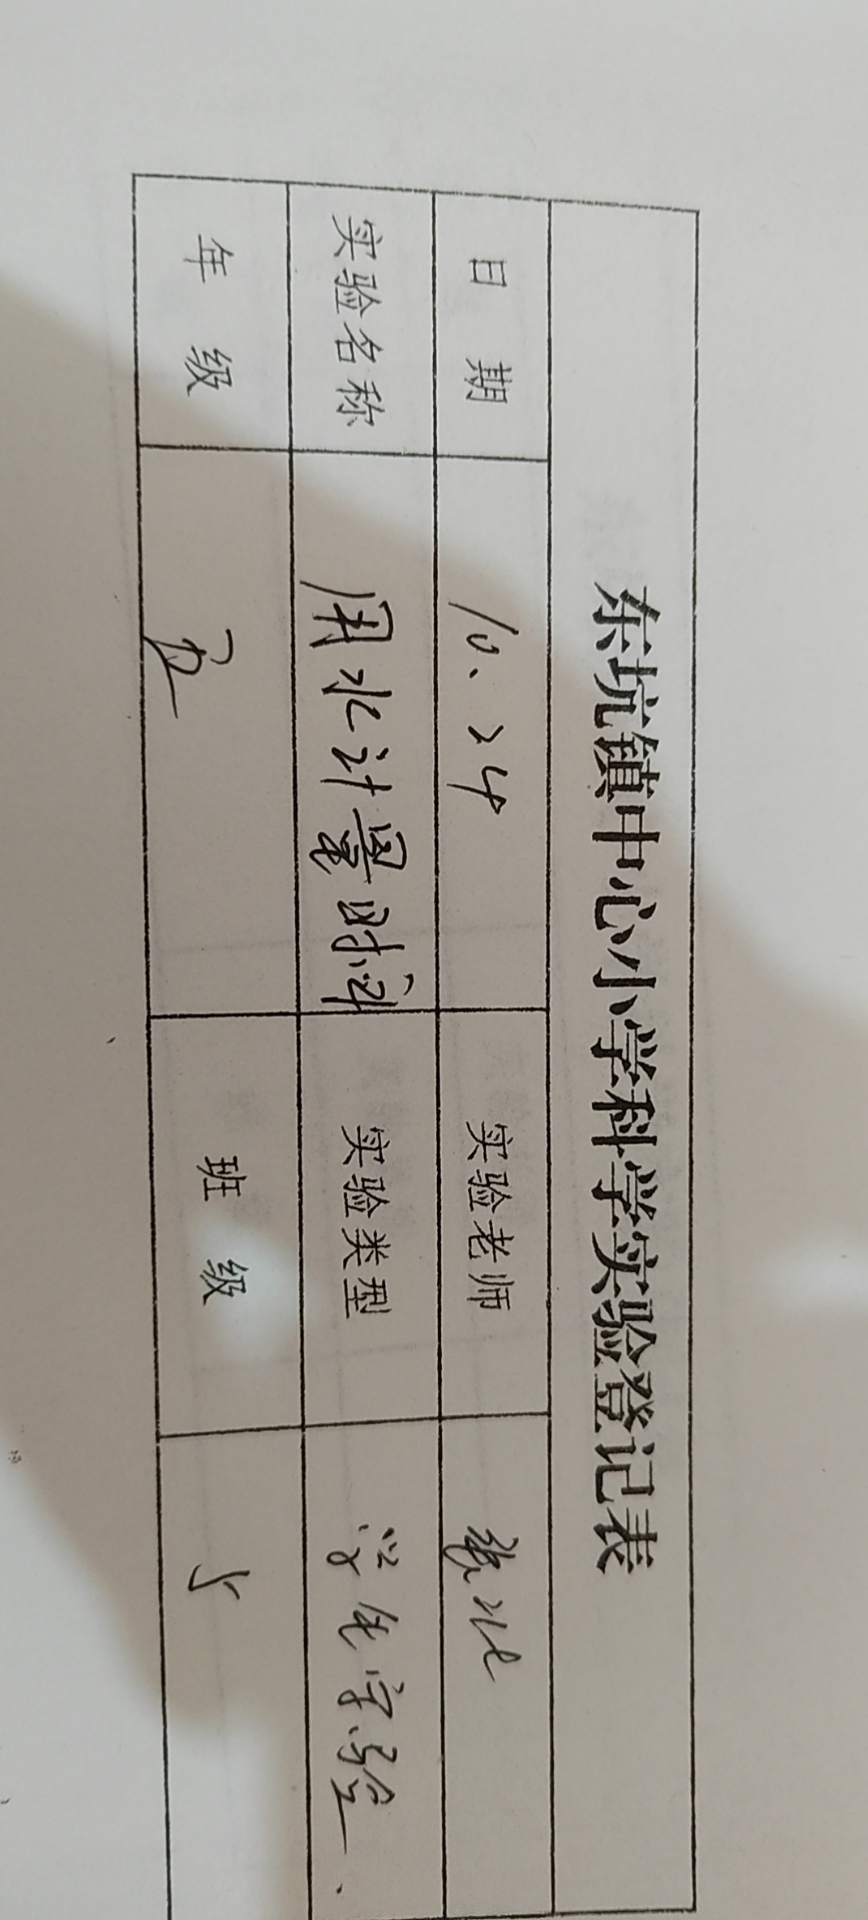 东坑镇中心小学科学实验登记表
日 期 10、24 实验老师
实验名称 用水计量时间 实验类型 学生实验.
年 级 五 班 级 5